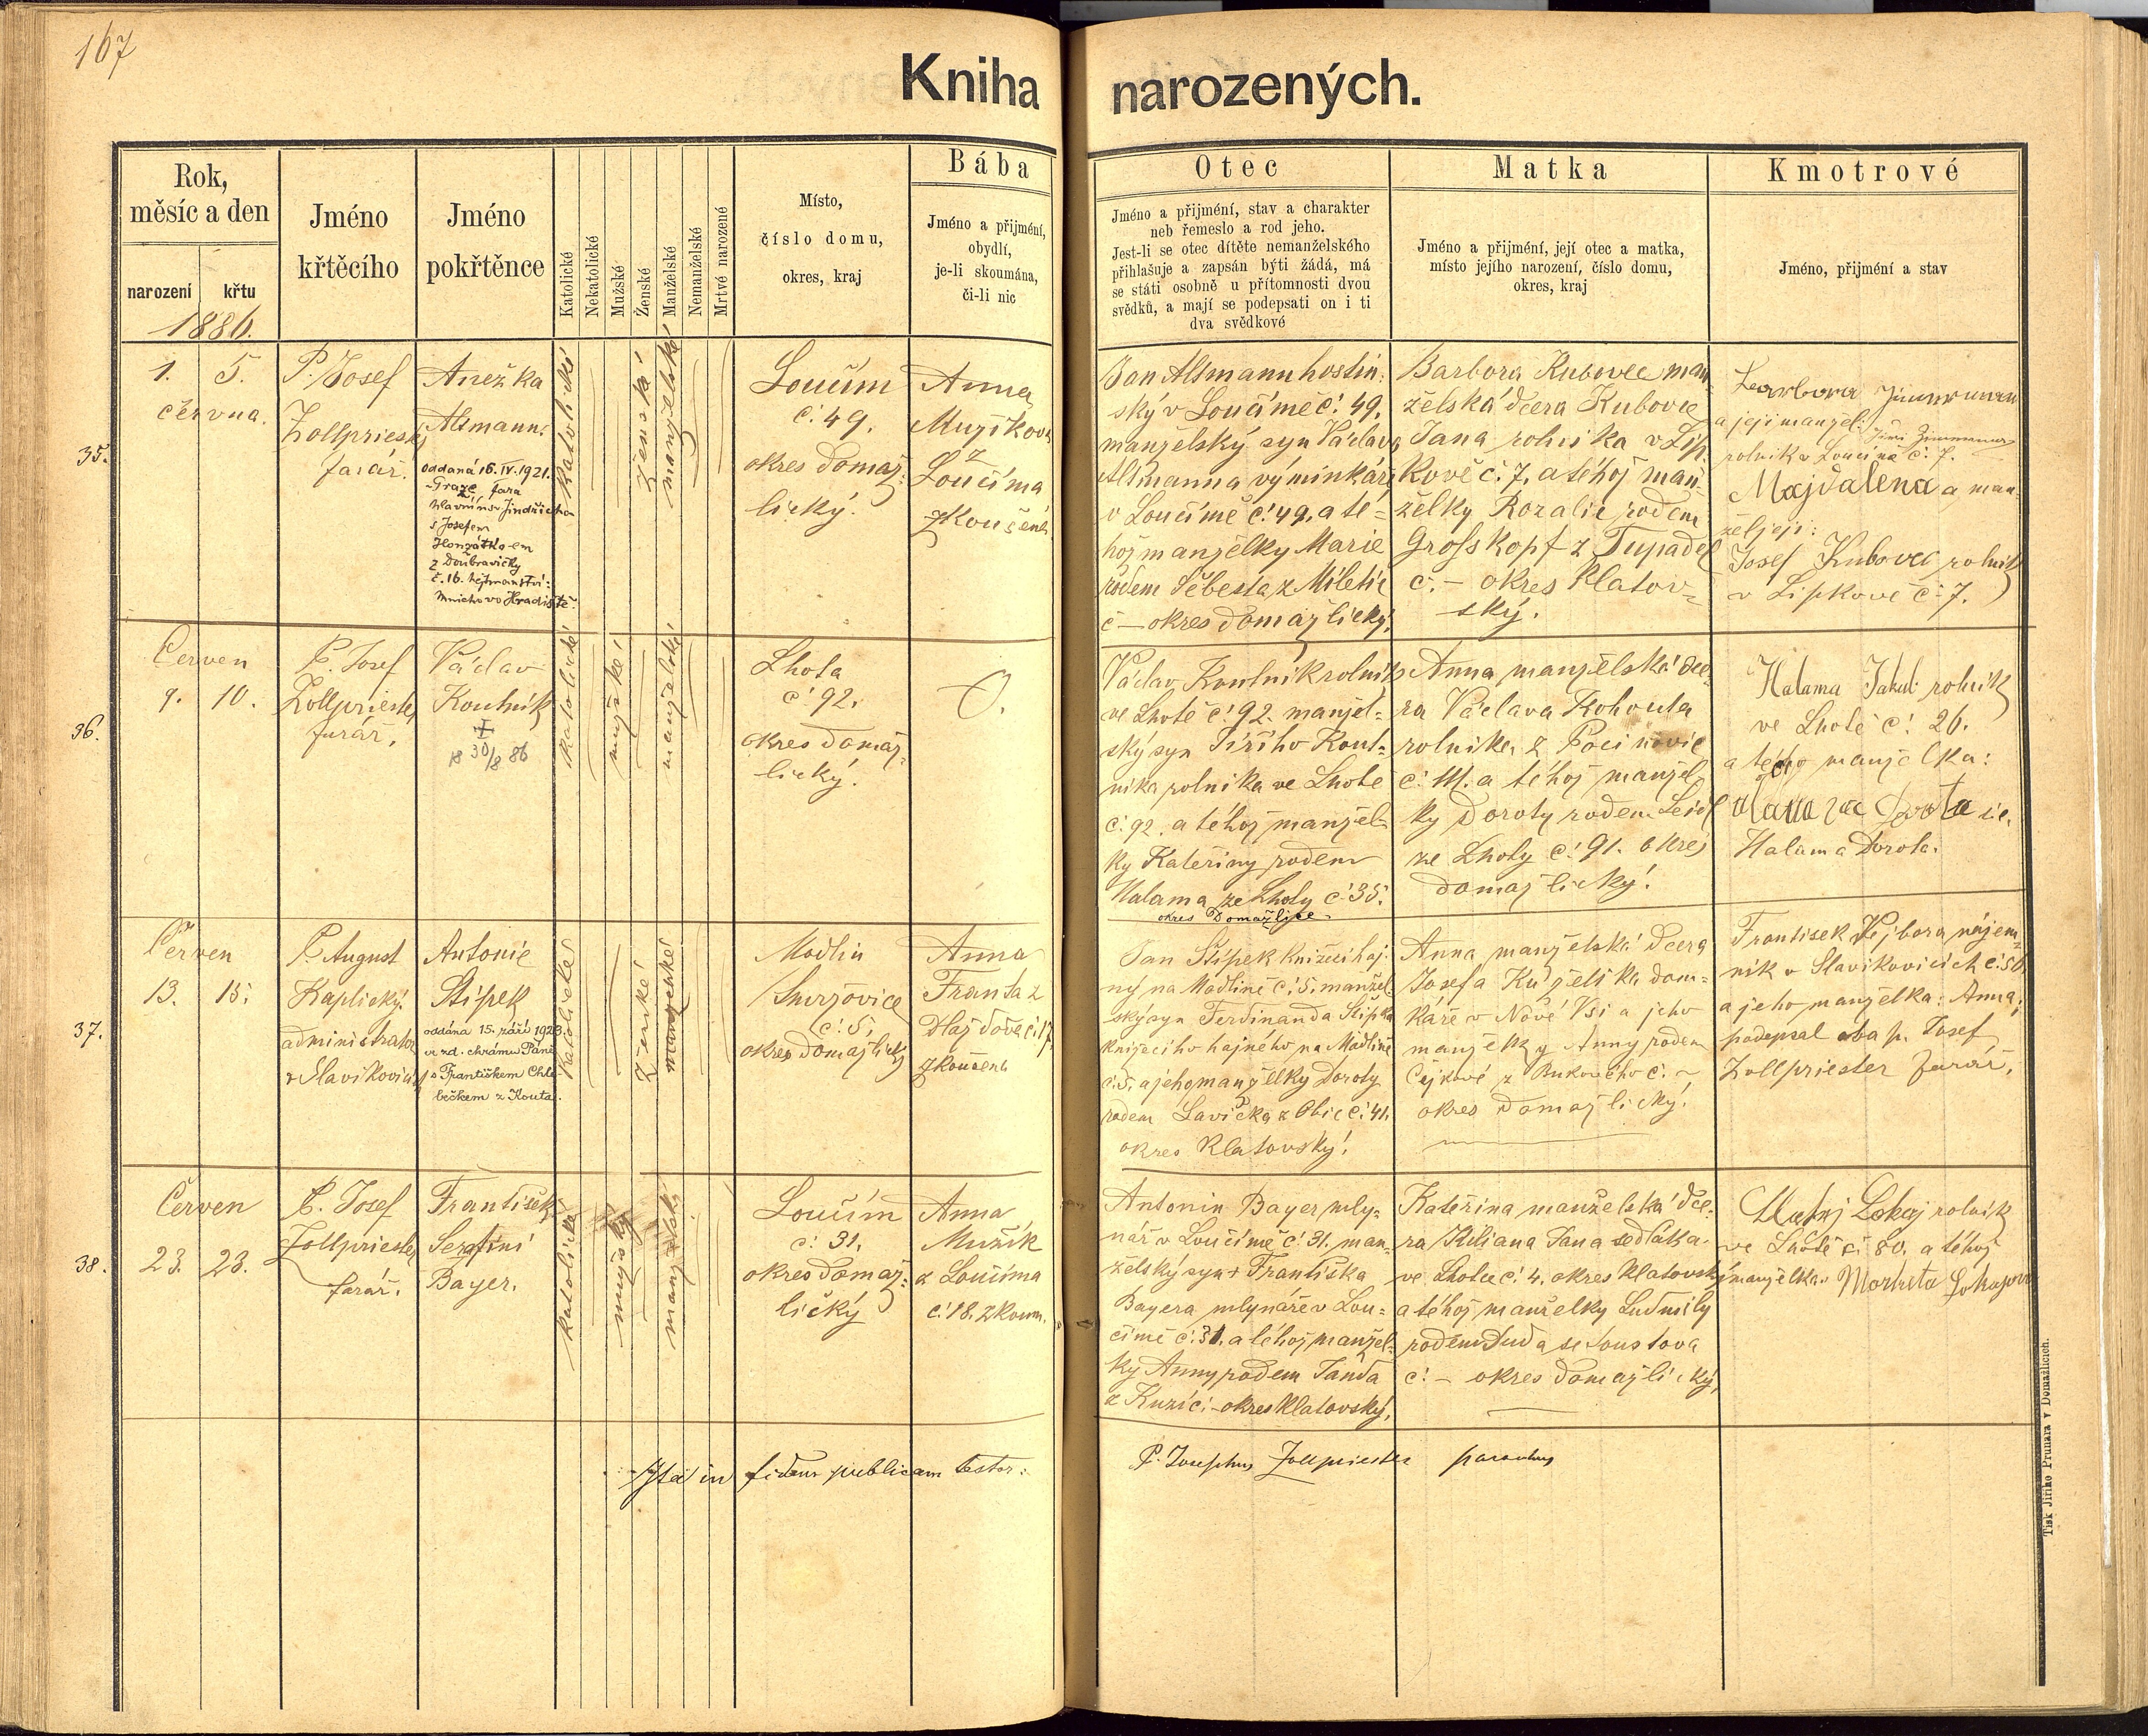 167
Kniha narozených.
Rok,
měsíc a den
narození
křtu
1886.
Jméno
křtěcího
Jméno
pokřtěnce
Katolické
Nekatolické
Mužské
Ženské
Manželské
Nemanželské
Mrtvé narozené
Místo,
číslo domu,
okres, kraj
Bába
Jméno a přijmení,
obydlí,
je-li skoumána,
či-li nic
Otec
Jméno a přijmení, stav a charakter
neb řemeslo a rod jeho.
Jest-li se otec dítěte nemanželského
přihlašuje a zapsán býti žádá, má
se státi osobně u přítomnosti dvou
svědků, a mají se podepsati on i ti
dva svědkové
Matka
Jméno a přijmení, její otec a matka,
místo jejího narození, číslo domu,
okres, kraj
Kmotrové
Jméno, přijmení a stav
35.
1. 5.
června.
P. Josef
Zollpriester
farář.
Anežka
Altmann.
oddaná 16. IV. 1921.
Graze fara
hlavní
s Josefem
Honzátko-em
z Doubravičky
č. 16. hejtmanství:
Mnichovo Hradiště.
katolické
ženské
manželské
Loučim
č. 49.
okres domaž-
lický.
Anna
Mužíkova
z
Loučíma
zkoušená
Jan Altmann hostin-
ský v Loučímě č. 49.
manželský syn Václava
Altmanna výminkáře
v Loučímě č. 49. a té-
hož manželky Marie
rodem Šebesta z Miletic
č — okres domažlický.
Barbora Kubovec man-
želská dcera Kubovce
Jana rolníka v Lip-
kově č. 7. a téhož man-
želky Rozalie rodem
Grosskopf z Tupadel
č. — okres Klatov-
ský.
Barbora Zimmerman
a její manžel: Jiří Zimmerman
rolník v Loučíně č. 7.
Majdalena a man-
žel její:
Josef Kubovec rolník
v Lipkově č. 7.
36.
Červen
9. 10.
P. Josef
Zollpriester
farář.
Václav
Koutník
18 30/8 86
katolické
mužské
manželské
Lhota
č. 92.
okres domaž-
lický.
0.
Václav Koutník rolník
ve Lhotě č. 92. manžel-
ský syn Jiřího Kout-
níka rolníka ve Lhotě
č. 92. a téhož manžel-
ky Kateřiny rodem
Halama ze Lhoty č. 35.
okres Domažlice
Anna manželská dce-
ra Václava Kohouta
rolníka z Pocinovic
č. 111. a téhož manžel-
ky Doroty rodem Leidl
ze Lhoty č. 91. okres
domažlický.
Halama Jakub rolník
ve Lhotě č. 26.
a téhož manželka:
Halama Dorota.
37.
Červen
13. 15.
P. August
Kaplický
administrator
v Slavikovicích
Antonie
Stípek
oddána 15. září 1923.
ve zd. chrámu Páně
s Františkem Chle-
bečkem z Kouta.
katolické
Ženské
manželské
Modlin
Smržovice
č. 5.
okres domažlický
Anna
Franta z
Hájdova č. 17
zkoušená
Jan Stípek knížecí haj-
ný na Modlíně č. 5. manžel-
ský syn Ferdinanda Stípka
knížecího hajného na Modlíně
č. 5. a jeho manželky Doroty
rodem Lavička z Obic č. 41.
okres Klatovský.
Anna manželská dcera
Josefa Kuželíka dom-
káře v Nové Vsi a jeho
manželky Anny rodem
Čejkové z Bukového č. —
okres domažlický.
František Vejbora nájem-
ník v Slavikovicích č. 50
a jeho manželka: Anna;
podepsal oba p. Josef
Zollpriester farář.
38.
Červen
23. 23.
P. Josef
Zollpriester
farář.
František
Serafini
Bayer.
katolické
mužský
manželský
Loučim
č. 31.
okres domaž-
lický
Anna
Mužík
z Loučíma
č. 18. zkoum.
Antonin Bayer mly-
nář v Loučímě č. 31. man-
želský syn + Františka
Bayera mlynáře v Lou-
címě č. 31. a téhož manžel-
ky Anny rodem Janda
z Kuzí č. — okres Klatovský.
Kateřina manželská dce-
ra Kiliana Jana sedláka
ve Lhotce č. 4. okres Klatovský
a téhož manželky Ludmily
rodem Duda se Soustova
č. — okres domažlický.
Matěj Lokaj rolník
ve Lhotě č. 80. a téhož
manželka. Markéta Lokajova
Ita in fidem publicam testor: P. Josephus Zollpriester parochus
Tisk Jiřího Prunara v Domažlicích.